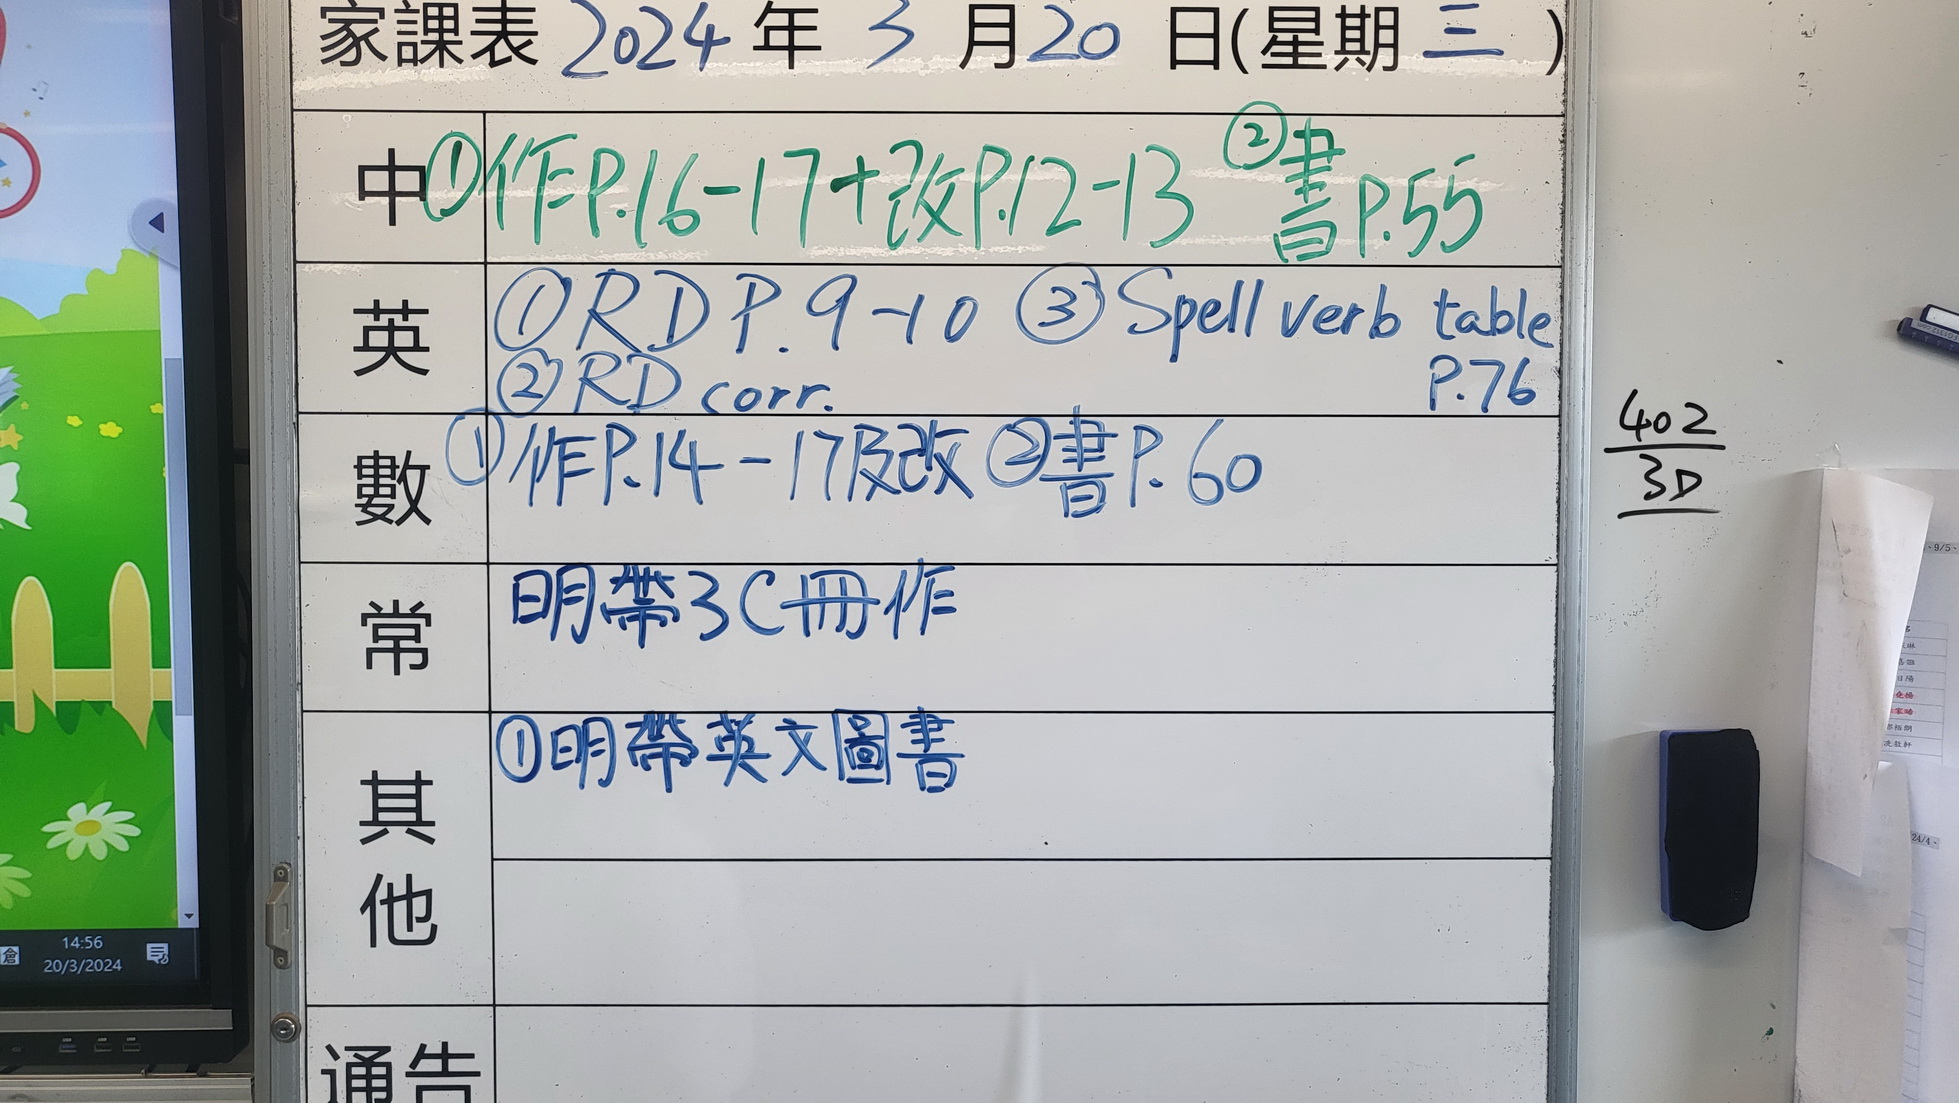 家課表 2024 年 3 月 20 日(星期 三 )
中 ①作P.16-17+改P.12-13 ②書P.55
英 ①RD P.9-10 ③Spell verb table
②RD corr. P.76
數 ①作P.14-17及改 ②書P.60
常 明帶3C冊作
其他 ①明帶英文圖書
通告
402
3D
14:56
20/3/2024
9/5
24/4